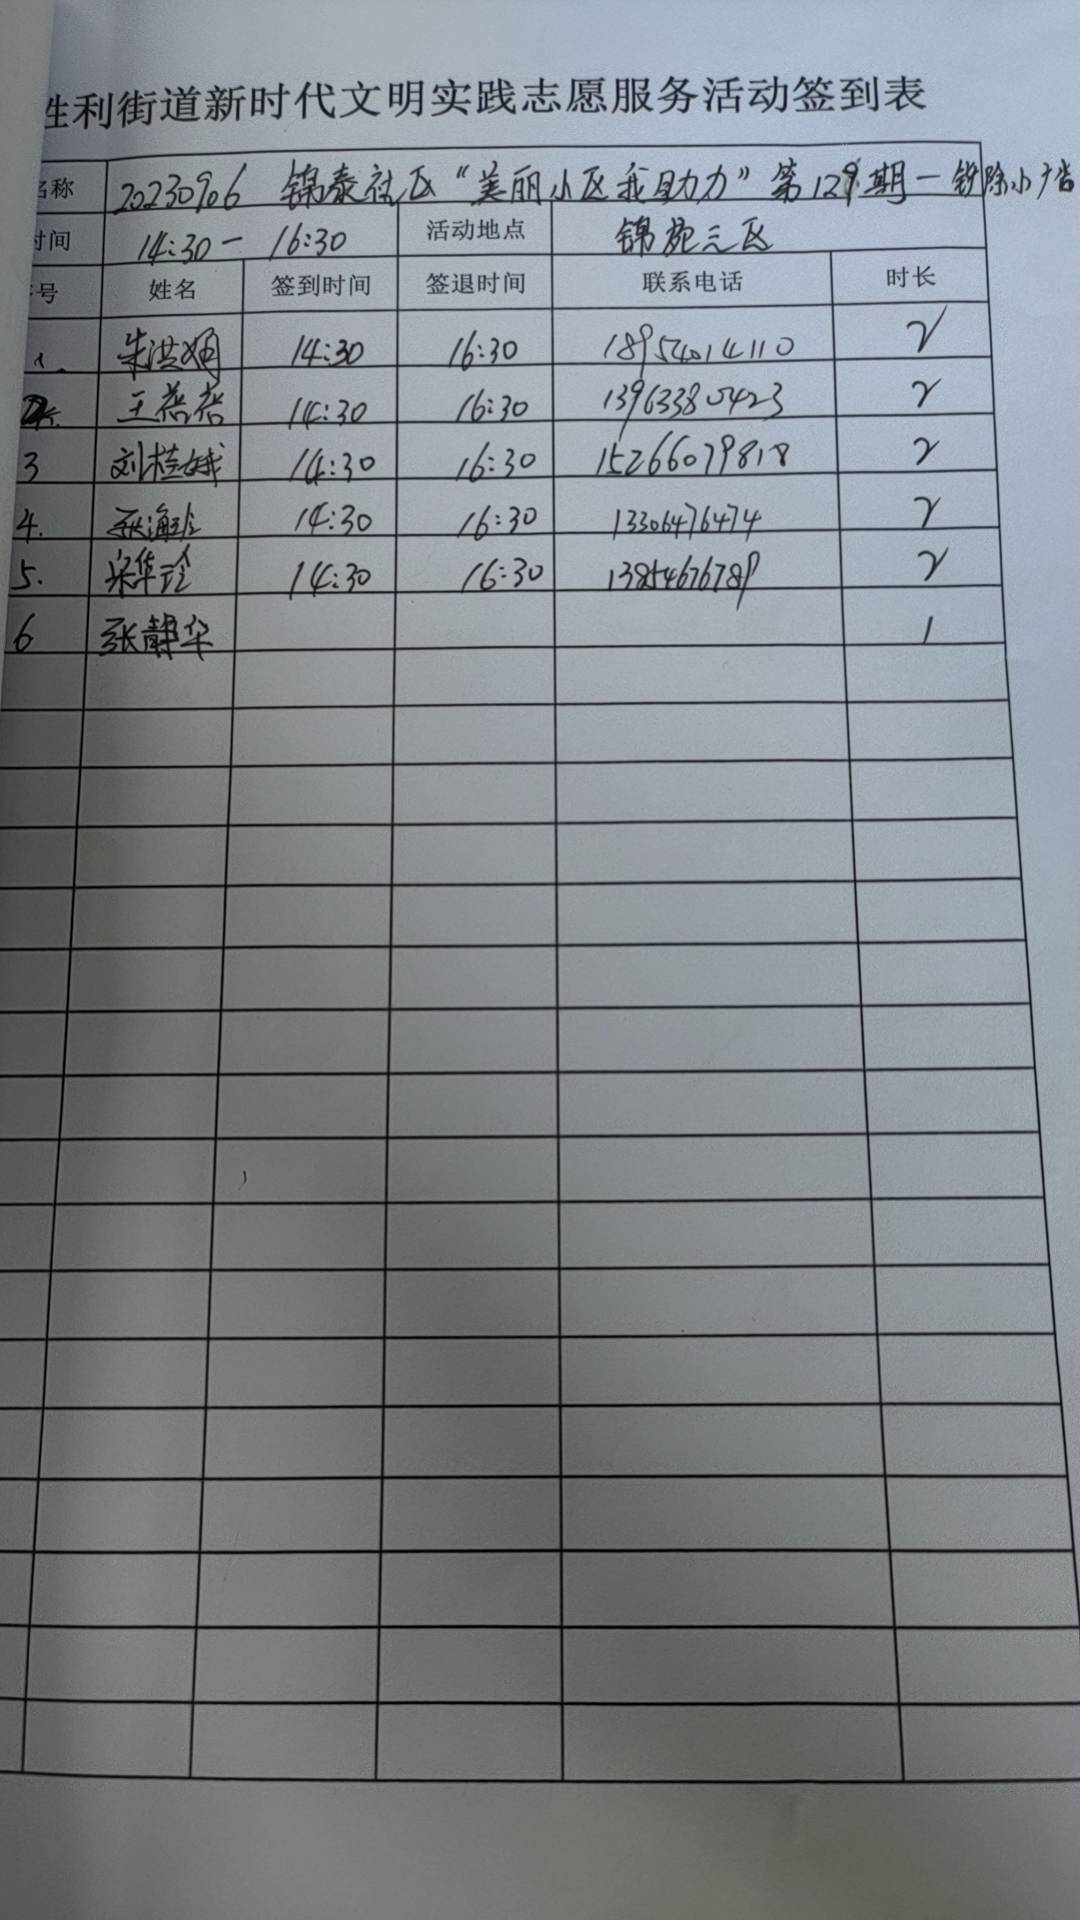 胜利街道新时代文明实践志愿服务活动签到表
名称 20230906 锦泰社区“美丽小区我助力”第129期一铲除小广告
时间 14:30一16:30 活动地点 锦苑三区
序号 姓名 签到时间 签退时间 联系电话 时长
1. 朱洪娟 14:30 16:30 18954014110 2
2. 王蓓蓓 14:30 16:30 13963380423 2
3 刘桂娥 14:30 16:30 15266079818 2
4. 14:30 16:30 13306476474 2
5. 宋华玲 14:30 16:30 13854676789 2
6 张静华 1